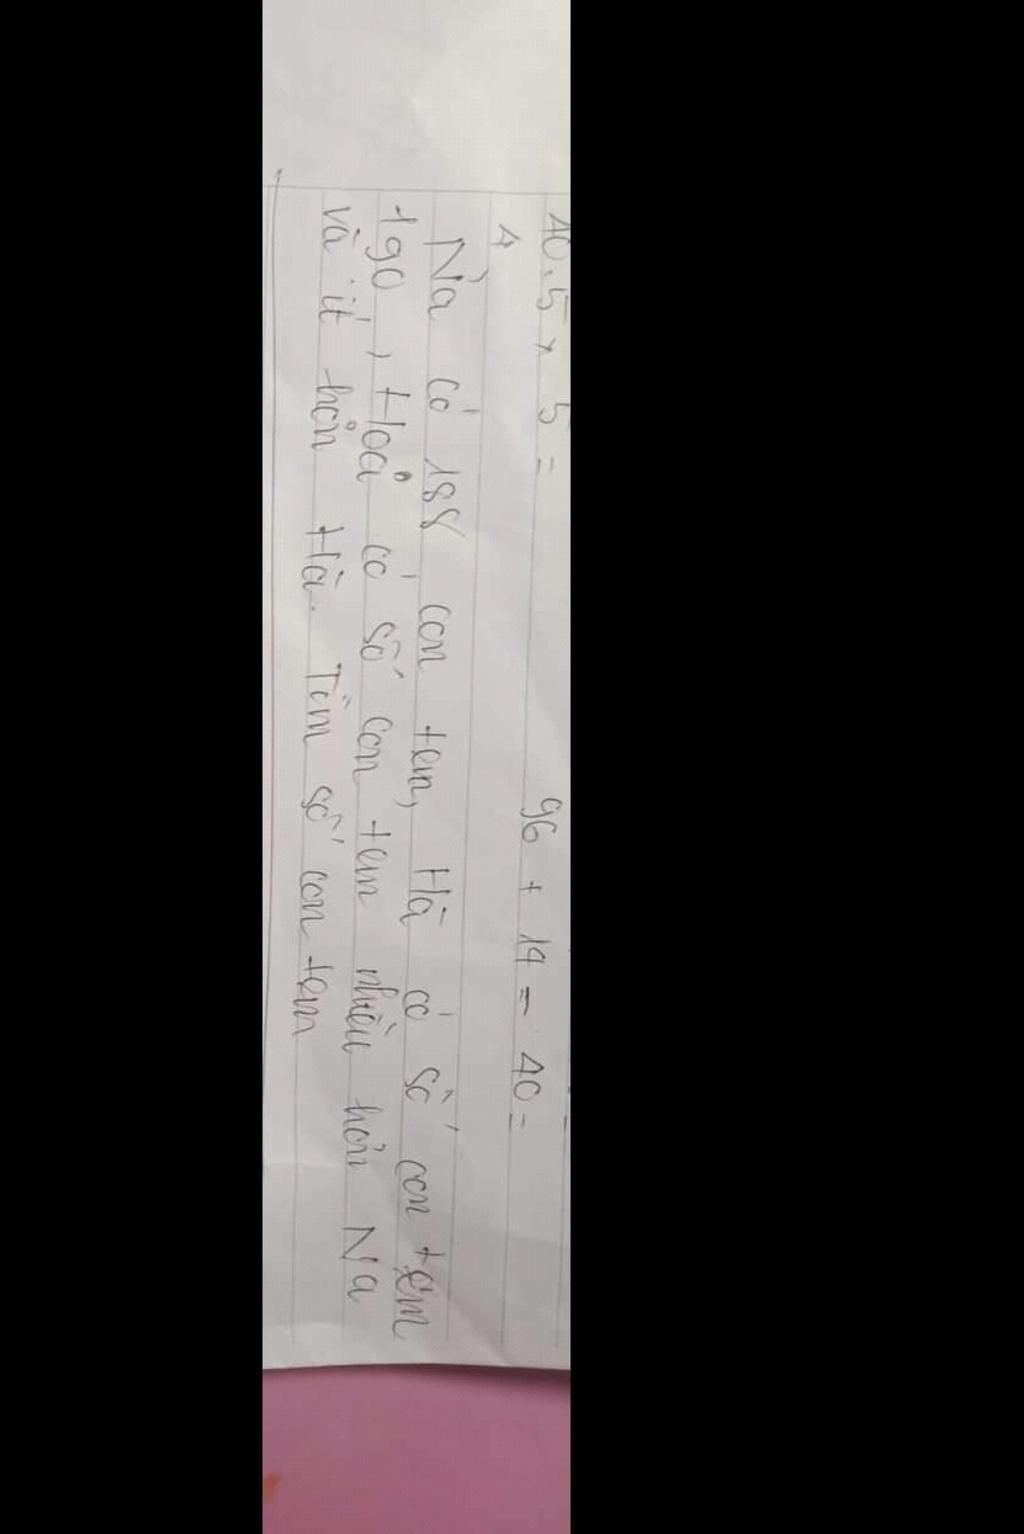 40.5 x 5 = 96 + 14 - 40 =
4
Na có 188 con tem, Hà có số con tem
190, Hoả có số con tem nhiều hơn Na
và ít hơn Hà. Tìm số con tem